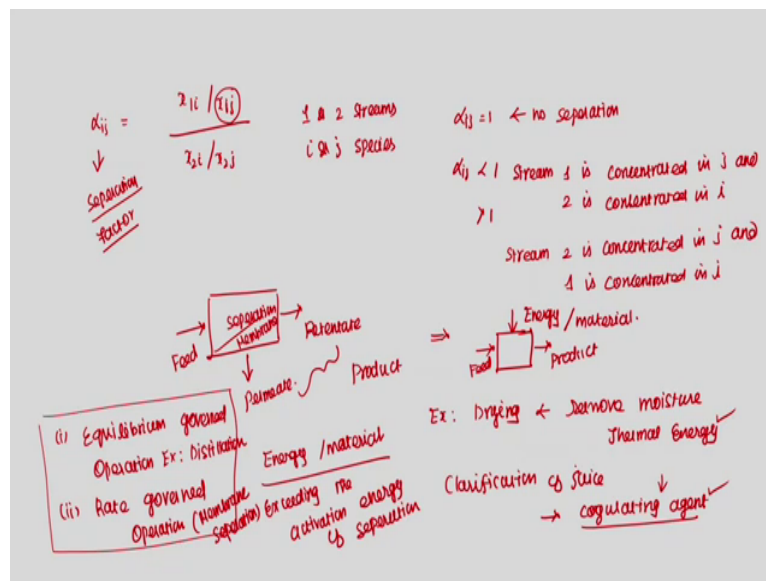 αij = x1i / x1j
x2i / x2j
Seperation
Factor
1 & 2 streams
i & j species
αij = 1 ← no seperation
αij < 1 Stream 1 is concentrated in j and
2 is concentrated in i
> 1
Stream 2 is concentrated in j and
1 is concentrated in i
Feed → Seperation Membrane → Retentate
Permeate. Product
⇒
Energy / material.
Feed → Product
(i) Equilibrium governed
Operation Ex: Distillation
(ii) Rate governed
Operation (Membrane
seperation)
Energy / material
Exceeding the
activation energy
of seperation
Ex: Drying ← Remove moisture
Thermal Energy ✓
Clarification of juice
→ coagulating agent ✓